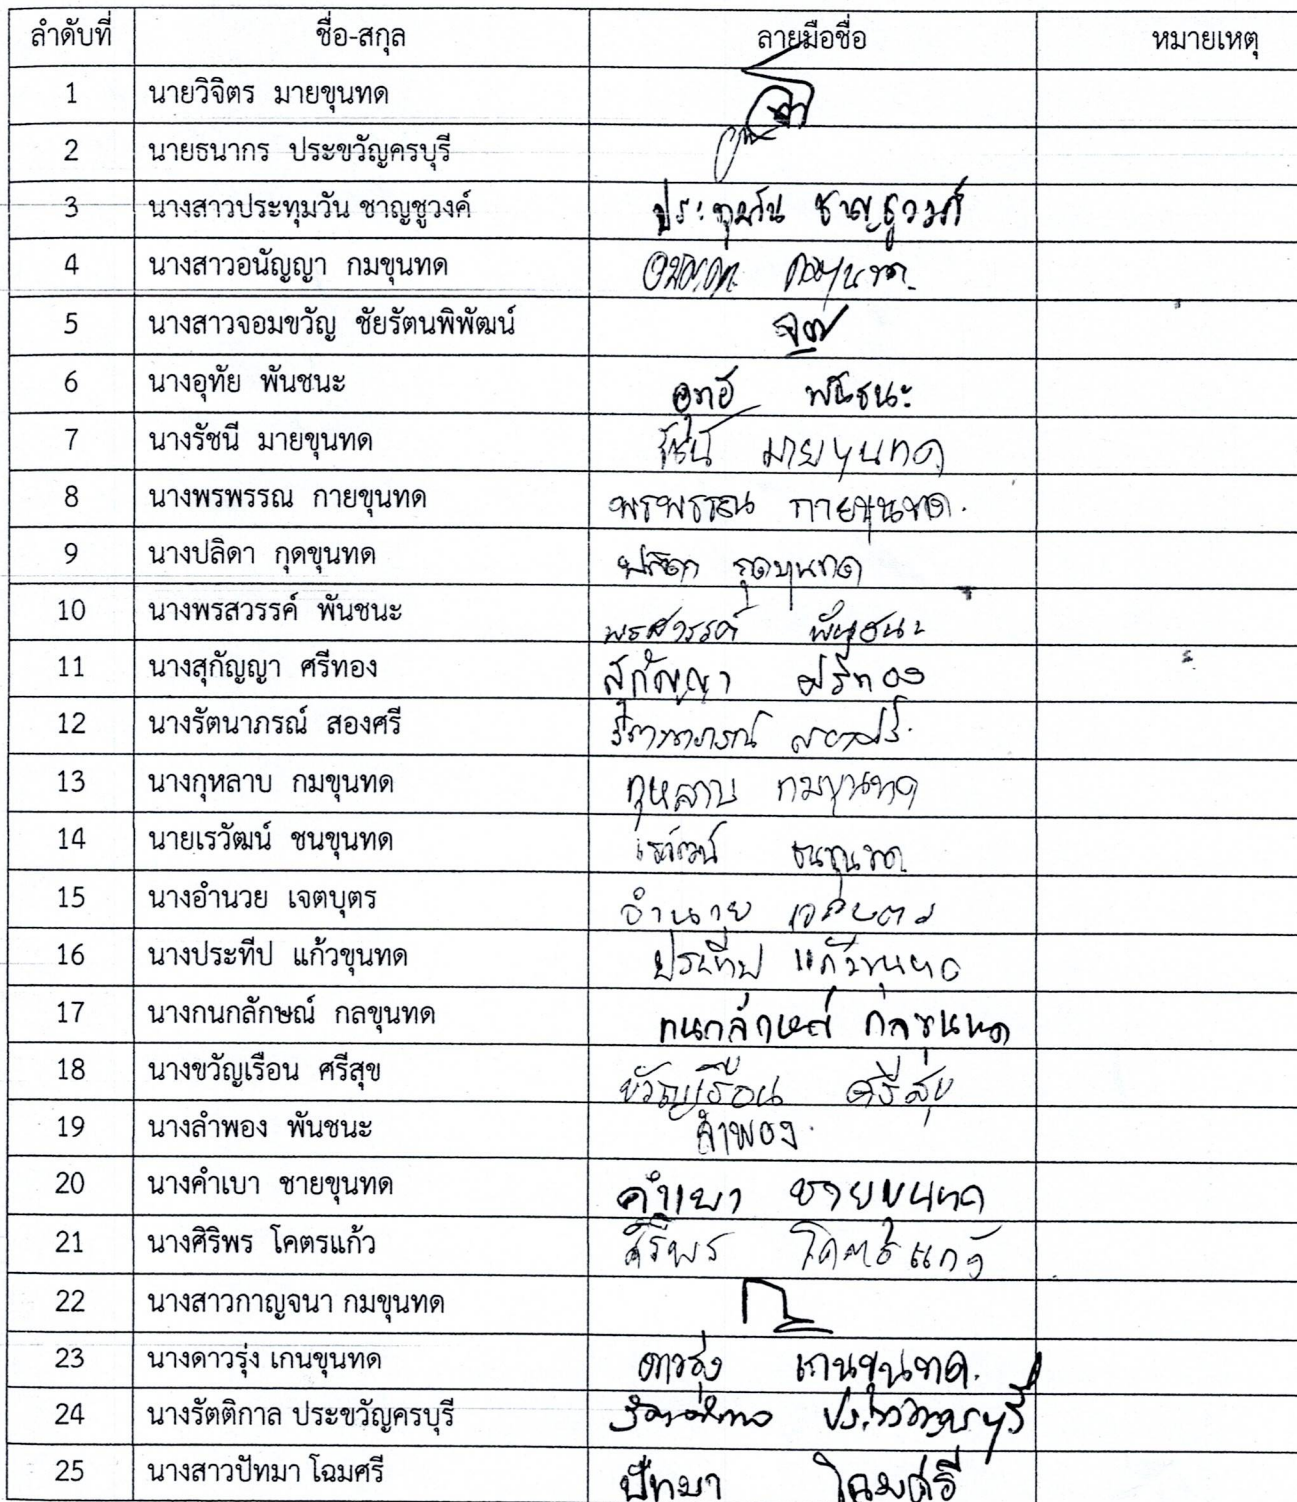 ลำดับที่ ชื่อ-สกุล ลายมือชื่อ หมายเหตุ
1 นายวิจิตร มายขุนทด
2 นายธนากร ประขวัญครบุรี
3 นางสาวประทุมวัน ชาญชูวงค์ ประทุมวัน ชาญชูวงค์
4 นางสาวอนัญญา กมขุนทด กมขุนทด
5 นางสาวจอมขวัญ ชัยรัตนพิพัฒน์
6 นางอุทัย พันชนะ อุทัย พันชนะ
7 นางรัชนี มายขุนทด รัชนี มายขุนทด
8 นางพรพรรณ กายขุนทด พรพรรณ กายขุนทด.
9 นางปลิดา กุดขุนทด ปลิดา กุดขุนทด
10 นางพรสวรรค์ พันชนะ พรสวรรค์ พันชนะ
11 นางสุกัญญา ศรีทอง สุกัญญา ศรีทอง
12 นางรัตนาภรณ์ สองศรี รัตนาภรณ์ สองศรี
13 นางกุหลาบ กมขุนทด กุหลาบ กมขุนทด
14 นายเรวัฒน์ ชนขุนทด เรวัฒน์ ชนขุนทด
15 นางอำนวย เจตบุตร อำนวย เจตบุตร
16 นางประทีป แก้วขุนทด ประทีป แก้วขุนทด
17 นางกนกลักษณ์ กลขุนทด กนกลักษณ์ กลขุนทด
18 นางขวัญเรือน ศรีสุข ขวัญเรือน ศรีสุข
19 นางลำพอง พันชนะ ลำพอง
20 นางคำเบา ชายขุนทด คำเบา ชายขุนทด
21 นางศิริพร โคตรแก้ว ศิริพร โคตรแก้ว
22 นางสาวกาญจนา กมขุนทด
23 นางดาวรุ่ง เกนขุนทด ดาวรุ่ง เกนขุนทด.
24 นางรัตติกาล ประขวัญครบุรี รัตติกาล ประขวัญครบุรี
25 นางสาวปัทมา โฉมศรี ปัทมา โฉมศรี